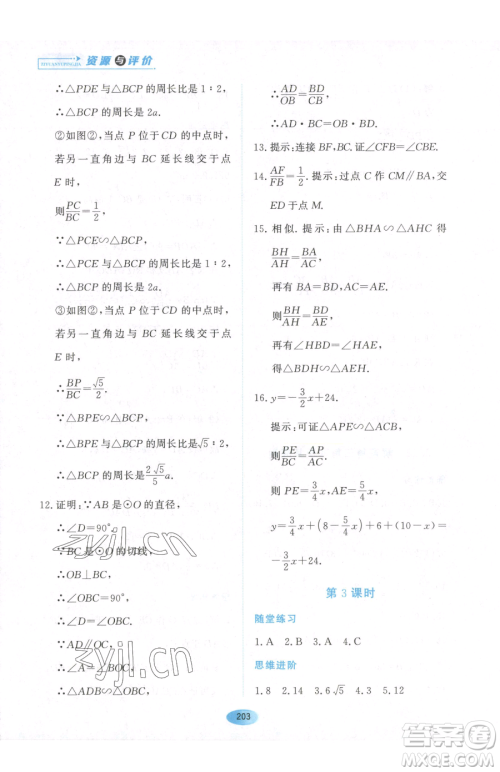 资源与评价
∴△PDE与△BCP的周长比是1∶2,
∴△BCP的周长是2a.
②如图②,当点P位于CD的中点时,
若另一直角边与BC延长线交于点
E时,
则PC/BC=1/2,
∵△PCE∽△BCP,
∴△PCE与△BCP的周长比是1∶2,
∴△BCP的周长是2a.
③如图②,当点P位于CD的中点时,
若另一直角边与BC延长线交于点
E时,
∴BP/BC=√5/2.
∵△BPE∽△BCP,
∴△BPE与△BCP的周长比是√5∶2,
∴△BCP的周长是2√5/5 a.
12.证明:∵AB是⊙O的直径,
∴∠D=90°.
∵BC是⊙O的切线,
∴OB⊥BC,
∴∠OBC=90°.
∵AD∥OC,
∴∠A=∠BOC,
∴△ADB∽△OBC,
∴AD/OB=BD/CB,
∴AD·BC=OB·BD.
13.提示:连接BF,BC.证∠CFB=∠CBE.
14.AF/FB=1/2.提示:过点C作CM∥BA,交
ED于点M.
15.相似.提示:由△BHA∽△AHC得
BH/AH=BA/AC,
再有BA=BD,AC=AE,
则BH/AH=BD/AE,
再有∠HBD=∠HAE,
得△BDH∽△AEH.
16.y=-3/2x+24.
提示:可证△APE∽△ABC,
则PE/BC=AP/AC,
则PE=3/4x,AE=5/4x,
y=x+3/4x+(8-5/4x)+6+(10-x)
=-3/2x+24.
第3课时
随堂练习
1.A 2.B 3.A 4.C
思维进阶
1.8 2.14 3.6√5 4.5 5.12
203
zyjl.cn
zyjl.cn
答案圈
MXQE.COM